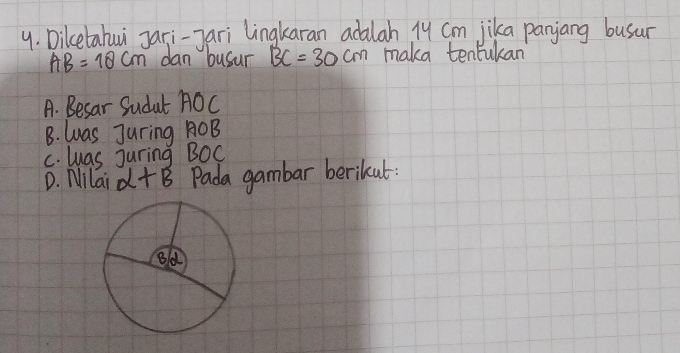 4. Diketahui Jari-Jari lingkaran adalah 14 cm jika panjang busur
AB = 18 cm dan busur BC = 30 cm maka tentukan
A. Besar Sudut AOC
B. Luas Juring AOB
C. Luas Juring BOC
D. Nilai α + B Pada gambar berikut:
B/α